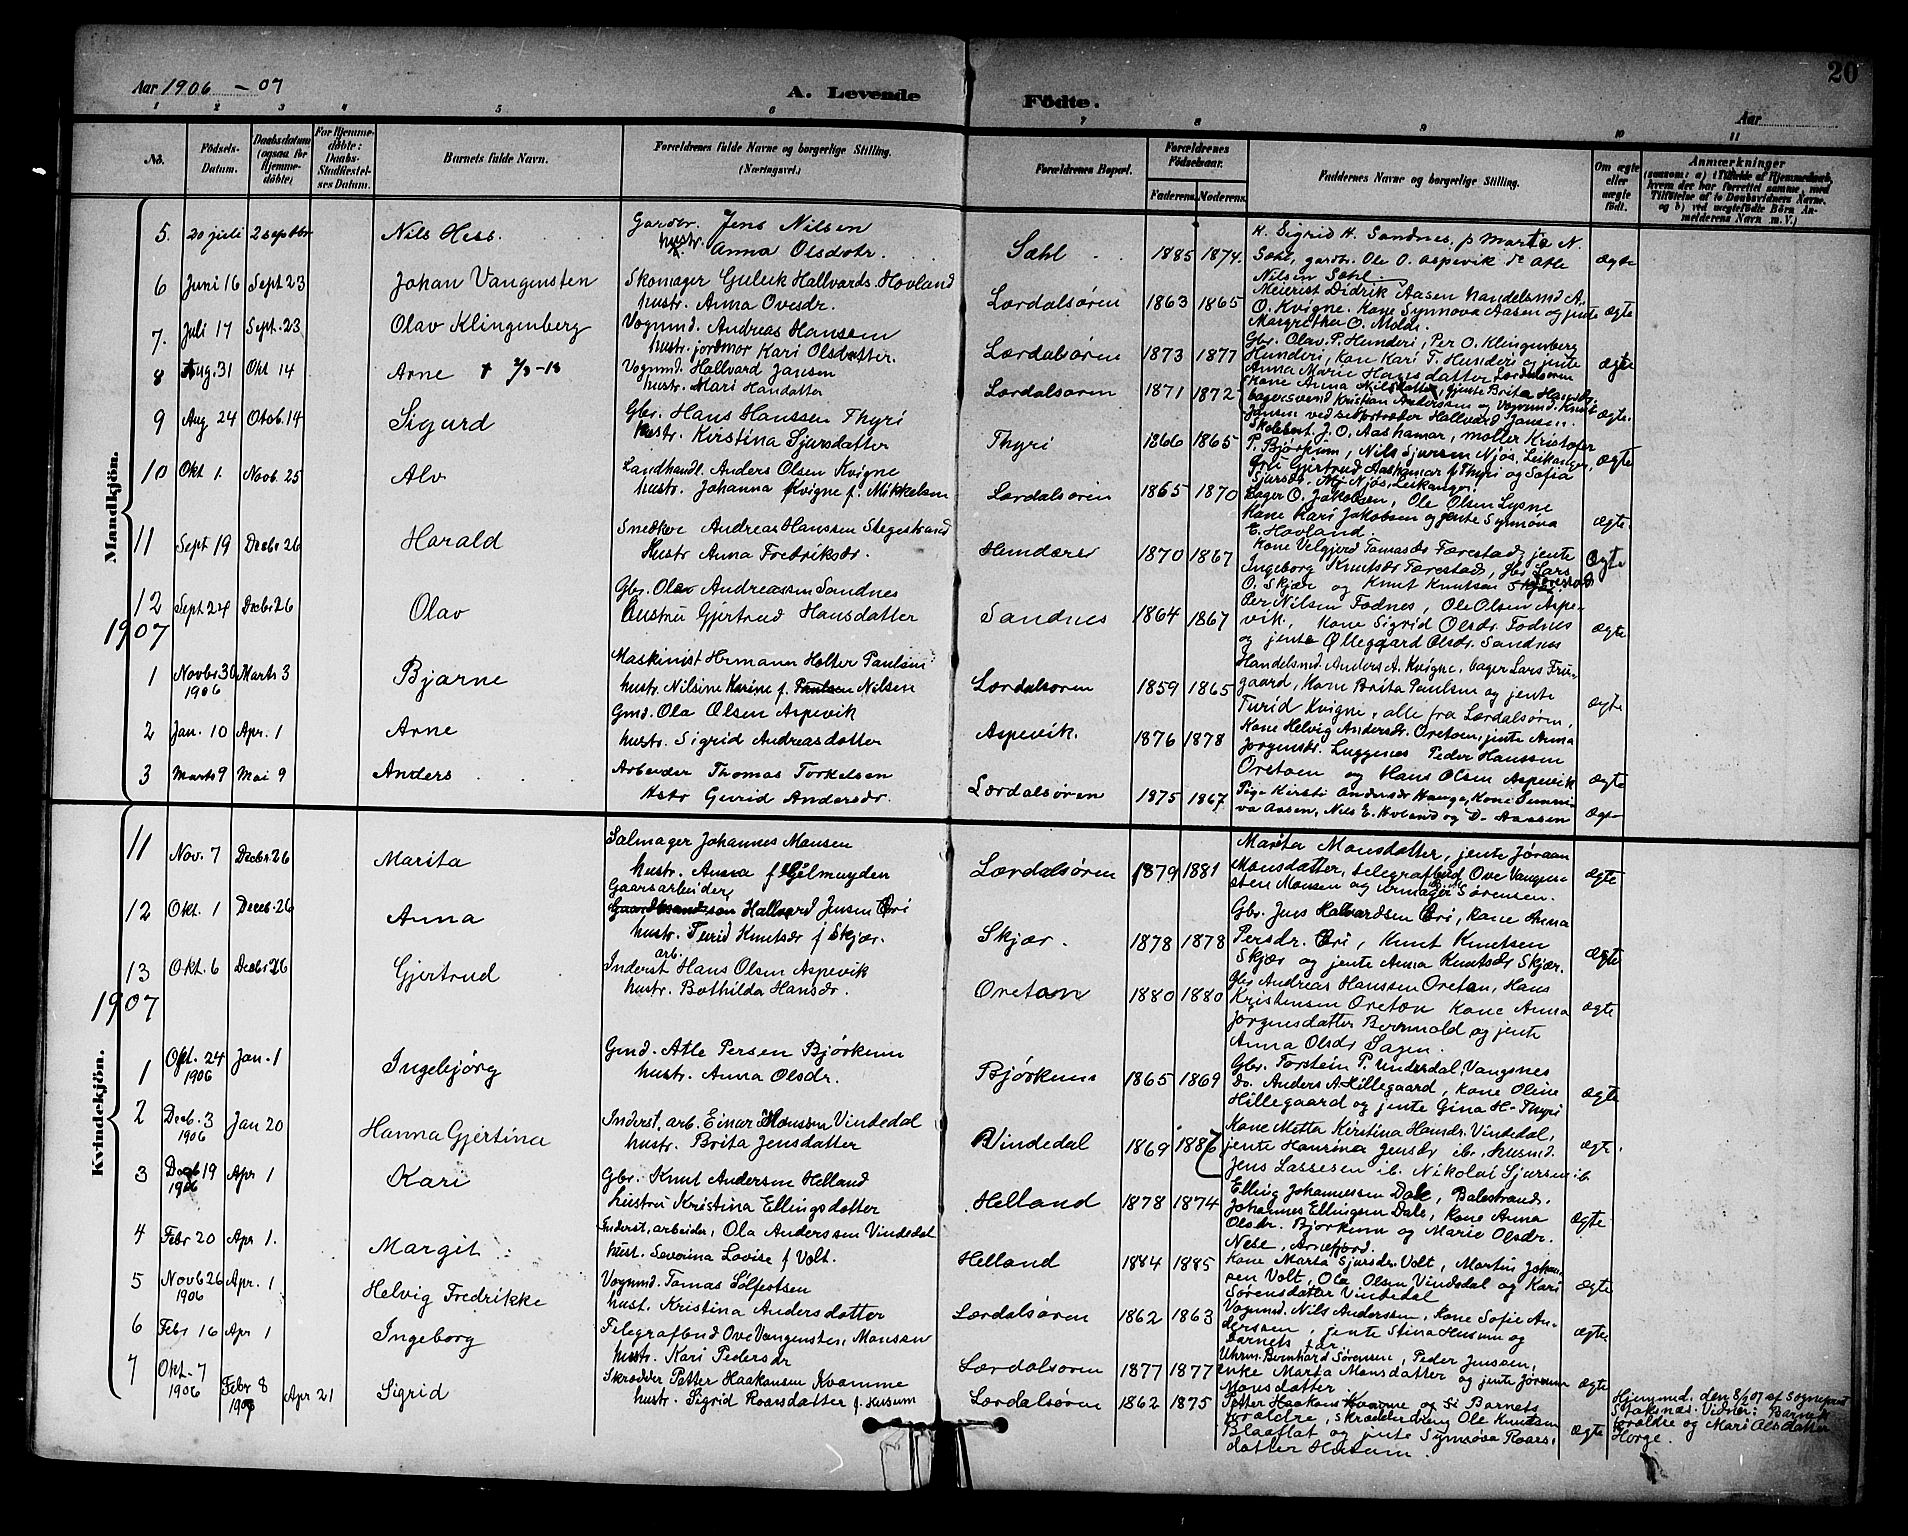 20
Aar 1906 - 07
A. Levende Födte.
Aar
1 2 3 4 5 6 7 8 9 10 11
No. Födsels-Datum. Daabsdatum (ogsaa for Hjemme-döbte) For Hjemme-döbte: Daabs-Stadfæstelses Datum. Barnets fulde Navn. Forældrenes fulde Navne og borgerlige Stilling. (Næringsvei.) Forældrenes Bopæl. Forældrenes Födselsaar. Faderens. Moderens. Faddernes Navne og borgerlige Stilling. Om ægte eller uægte födt. Anmærkninger
Mandkjön.
5. 20 juli 2 septbr Nils Hess Gardbr. Jens Nilsen
hustr. Anna Olsdotr. Sæhl 1885 1874. H. Sigrid H. Sandnes, p Marta N.
Sæhl, gardbr. Ole O. Aspevik Atle
Nilsen Sæhl. ægte
6 Juni 16 Sept 23 Johan Vangensten Skomager Gulleik Hallvards. Hovland
hustr. Anna Ovesdr. Lærdalsøren 1863 1865 Meierist Didrik Aasen handelsmd A.
O. Kvigne. Kone Synnøva Aasen og jente
Margrethe O. Molde. ægte
7. Juli 17 Sept. 23 Olav Klingenberg Vognmd. Andreas Hansen
hustr. jordmor Kari Olsdatter. Lærdalsøren 1873 1877 Gbr. Olav P. Hunderi, Per O. Klingenberg
Hunderi, kone Kari T. Hunderi og jente
Anna Marie Hansdatter Lærdalsøren ægte
8 Aug. 31 Okt 14 Arne † 7/3-13 Vognmd. Hallvard Jansen
hustr. Mari Hansdatter Lærdalsøren 1871 1872 Kone Anna Nilsdatter, jente Brita
bagersvend Kristian Andersen og Vognmd. Knut
Jansen ved sættfortræder Hallvard Jansen. ægte.
9 Aug 24 Oktob. 14 Sigurd Gbr. Hans Hanssen Thyri
hustr. Kirstina Sjursdatter Thyri 1866 1865 J. O. Aashamar, møller Kristofer
P. Bjørkum, Nils Sjursen Njøs, Leikanger,
Gjertrud Aashamar f Thyri og Sofia
Sjursdr. Njøs, Leikanger. ægte
10 Okt 1. Novb. 25 Alv Landhandl. Anders Olsen Kvigne
hustr. Johanna Kvigne f. Mikkelsen Lærdalsøren 1865 1870 Bager O. Jakobsen, Ole Olsen Lysne
Kone Kari Jakobsen og jente Synnøva
E. Hovland. ægte.
11 Sept 19 Decbr 26 Harald Snedker Andreas Hanssen Stegestrand
Hustr Anna Fredriksdr. Hunderi 1870 1867 Kone Velgjerd Tomasdr Færestad, jente
Ingeborg Knutsdr Færestad, Gbr Lars
O. Skjær og Knut Knutsen Færestad ægte
12 Sept 24 Decbr 26 Olav Gbr. Olav Andreassen Sandnes
hustru Gjertrud Hansdatter Sandnes 1864 1867 Per Nilsen Fodnes, Ole Olsen Aspe-
vik, Kone Sigrid Olsdr. Fodnes
og jente Øllegaard Olsdr. Sandnes ægte
1907
1 Novbr 30 1906 Marts 3 Bjarne Maskinist Herman Holter Paulsen
hustr. Nilsine Karine f. Paulsen Nilsen Lærdalsøren 1859 1865 Handelsmd. Anders A. Kvigne, bager Lars Fru-
gaard, Kone Brita Paulsen og jente
Turid Kvigne, alle fra Lærdalsøren. ægte
2 Jan. 10 Apr. 1 Arne Gmd. Ola Olsen Aspevik
hustr. Sigrid Andreasdatter Aspevik. 1876 1878 Kone Helvig Andersdr. Oretøen, jente Anna
Jorgensdr. Luggenes Peder Hanssen
Oretoen og Hans Olsen Aspevik ægte
3 Marts 9 Mai 9 Anders Arbeider Thomas Torkelsen
Hstr Gurid Andersdr. Lærdalsøren 1875 1867 Pige Kirsti Andersdr Hauga, Kone Sunni-
va Aasen, Nils E. Hovland og D. Aasen ægte
Kvindekjön.
11 Nov. 7 Decbr. 26 Marita Salmager Johannes Monsen
hustr. Anna f Gilmuyden Lærdalsøren 1879 1881 Marita Monsdatter, jente Jøraan
Monsdatter, telegrafbud Ove Vangen-
sten Monsen og urmager Sørensen. ægte
12 Okt. 1 Deceb. 26 Anna Gaardsarbeider
Hallvard Jensen Øri
hustr. Turid Knutsdr f Skjær. Skjær. 1878 1878 Gbr. Jens Halvardsen Øri, kone Anna
Persdr. Øri, Knut Knutsen
Skjær og jente Anna Knutsdr Skjær. ægte
13 Okt. 6 Decbr 26 Gjertrud Inderst arb. Hans Olsen Aspevik
hustr. Bothilda Hansdr. Oretøen 1880 1880 Gbr Andreas Hanssen Oretøen, Hans
Kristensen Oretøen Kone Anna
Jörgensdatter Bermold og jente
Anna Olsdr Sagen. ægte
1907
1 Okt. 24 1906 Jan. 1 Ingebjörg Gmd. Atle Persen Bjørkum
hustr. Anna Olsdr. Bjørkum 1865 1869 Gbr. Torstein P. Underdal, Vangsnes
Do. Anders A. Hillegaard, kone Oline
Hillegaard og jente Gina H. Thyri ægte
2 Decb. 3 1906 Jan 20 Hanna Gjertina Inderst. arb. Einar Hanssen Vindedal
hustr. Brita Jensdatter Vindedal 1869 1887 Kone Metta Kirstina Hansdr. Vindedal,
jente Hansina Jensdr ib. Husmd.
Jens Lassesen ib. Nikolai Sjursen ib. ægte.
3 Decb 19 1906 Apr 1 Kari Gbr. Knut Andersen Helland
hustru Kristina Ellingsdatter Helland 1878 1874 Elling Johannessen Dale, Balestrand.
Johannes Ellingsen Dale, kone Anna
Olsdr. Bjørkum og Marie Olsdr.
Nese, Arnefjord. ægte
4 Febr 20 Apr 1. Margit Inderst, arbeider, Ola Anderssen Vindedal
hust. Severina Lovise f Volt. Helland 1884 1885 Kone Marta Sjursdr. Volt, Martin Johan-
sen Volt, Ola Olsen Vindedal og Kari
Sørensdatter Vindedal ægte
5 Novb 26 1906 Apr. 1 Helvig Fredrikke Vognmd. Tomas Sølfestsen
hust. Kristina Andersdatter Lærdalsøren 1862 1863 Vognmd. Nils Anderssen, kone Sofie An-
derssen, jente Stina Husum og
barnets far. ægte
6 Febr 16 Apr 1 Ingeborg Telegrafbud Ove Vangensten Monsen
hustr. Kari Pedersdr Lærdalsøren 1877 1877 Uhrm. Bernhard Sørensen, Peder Jensen,
enke Marta Monsdatter og jente Jøraan
Monsdatter ægte
7 Okt. 7 1906 Febr 8 Apr 21 Sigrid Skrædder Petter Haakonsen Kvamme
hustr. Sigrid Roarsdatter f. Husum Lærdalsøren 1862 1875 Petter Haakons Kvamme og Barnets
foraldre, skrædderdreng Ole Knutsen
Blaaflat og jente Synnøva Roars-
datter Husum. ægte Hjemmd. den 8/2 07 af Sogneprest
S. Jaksnæs. Vidner: Barnets
foraldre og Mari Olsdatter
Horge.